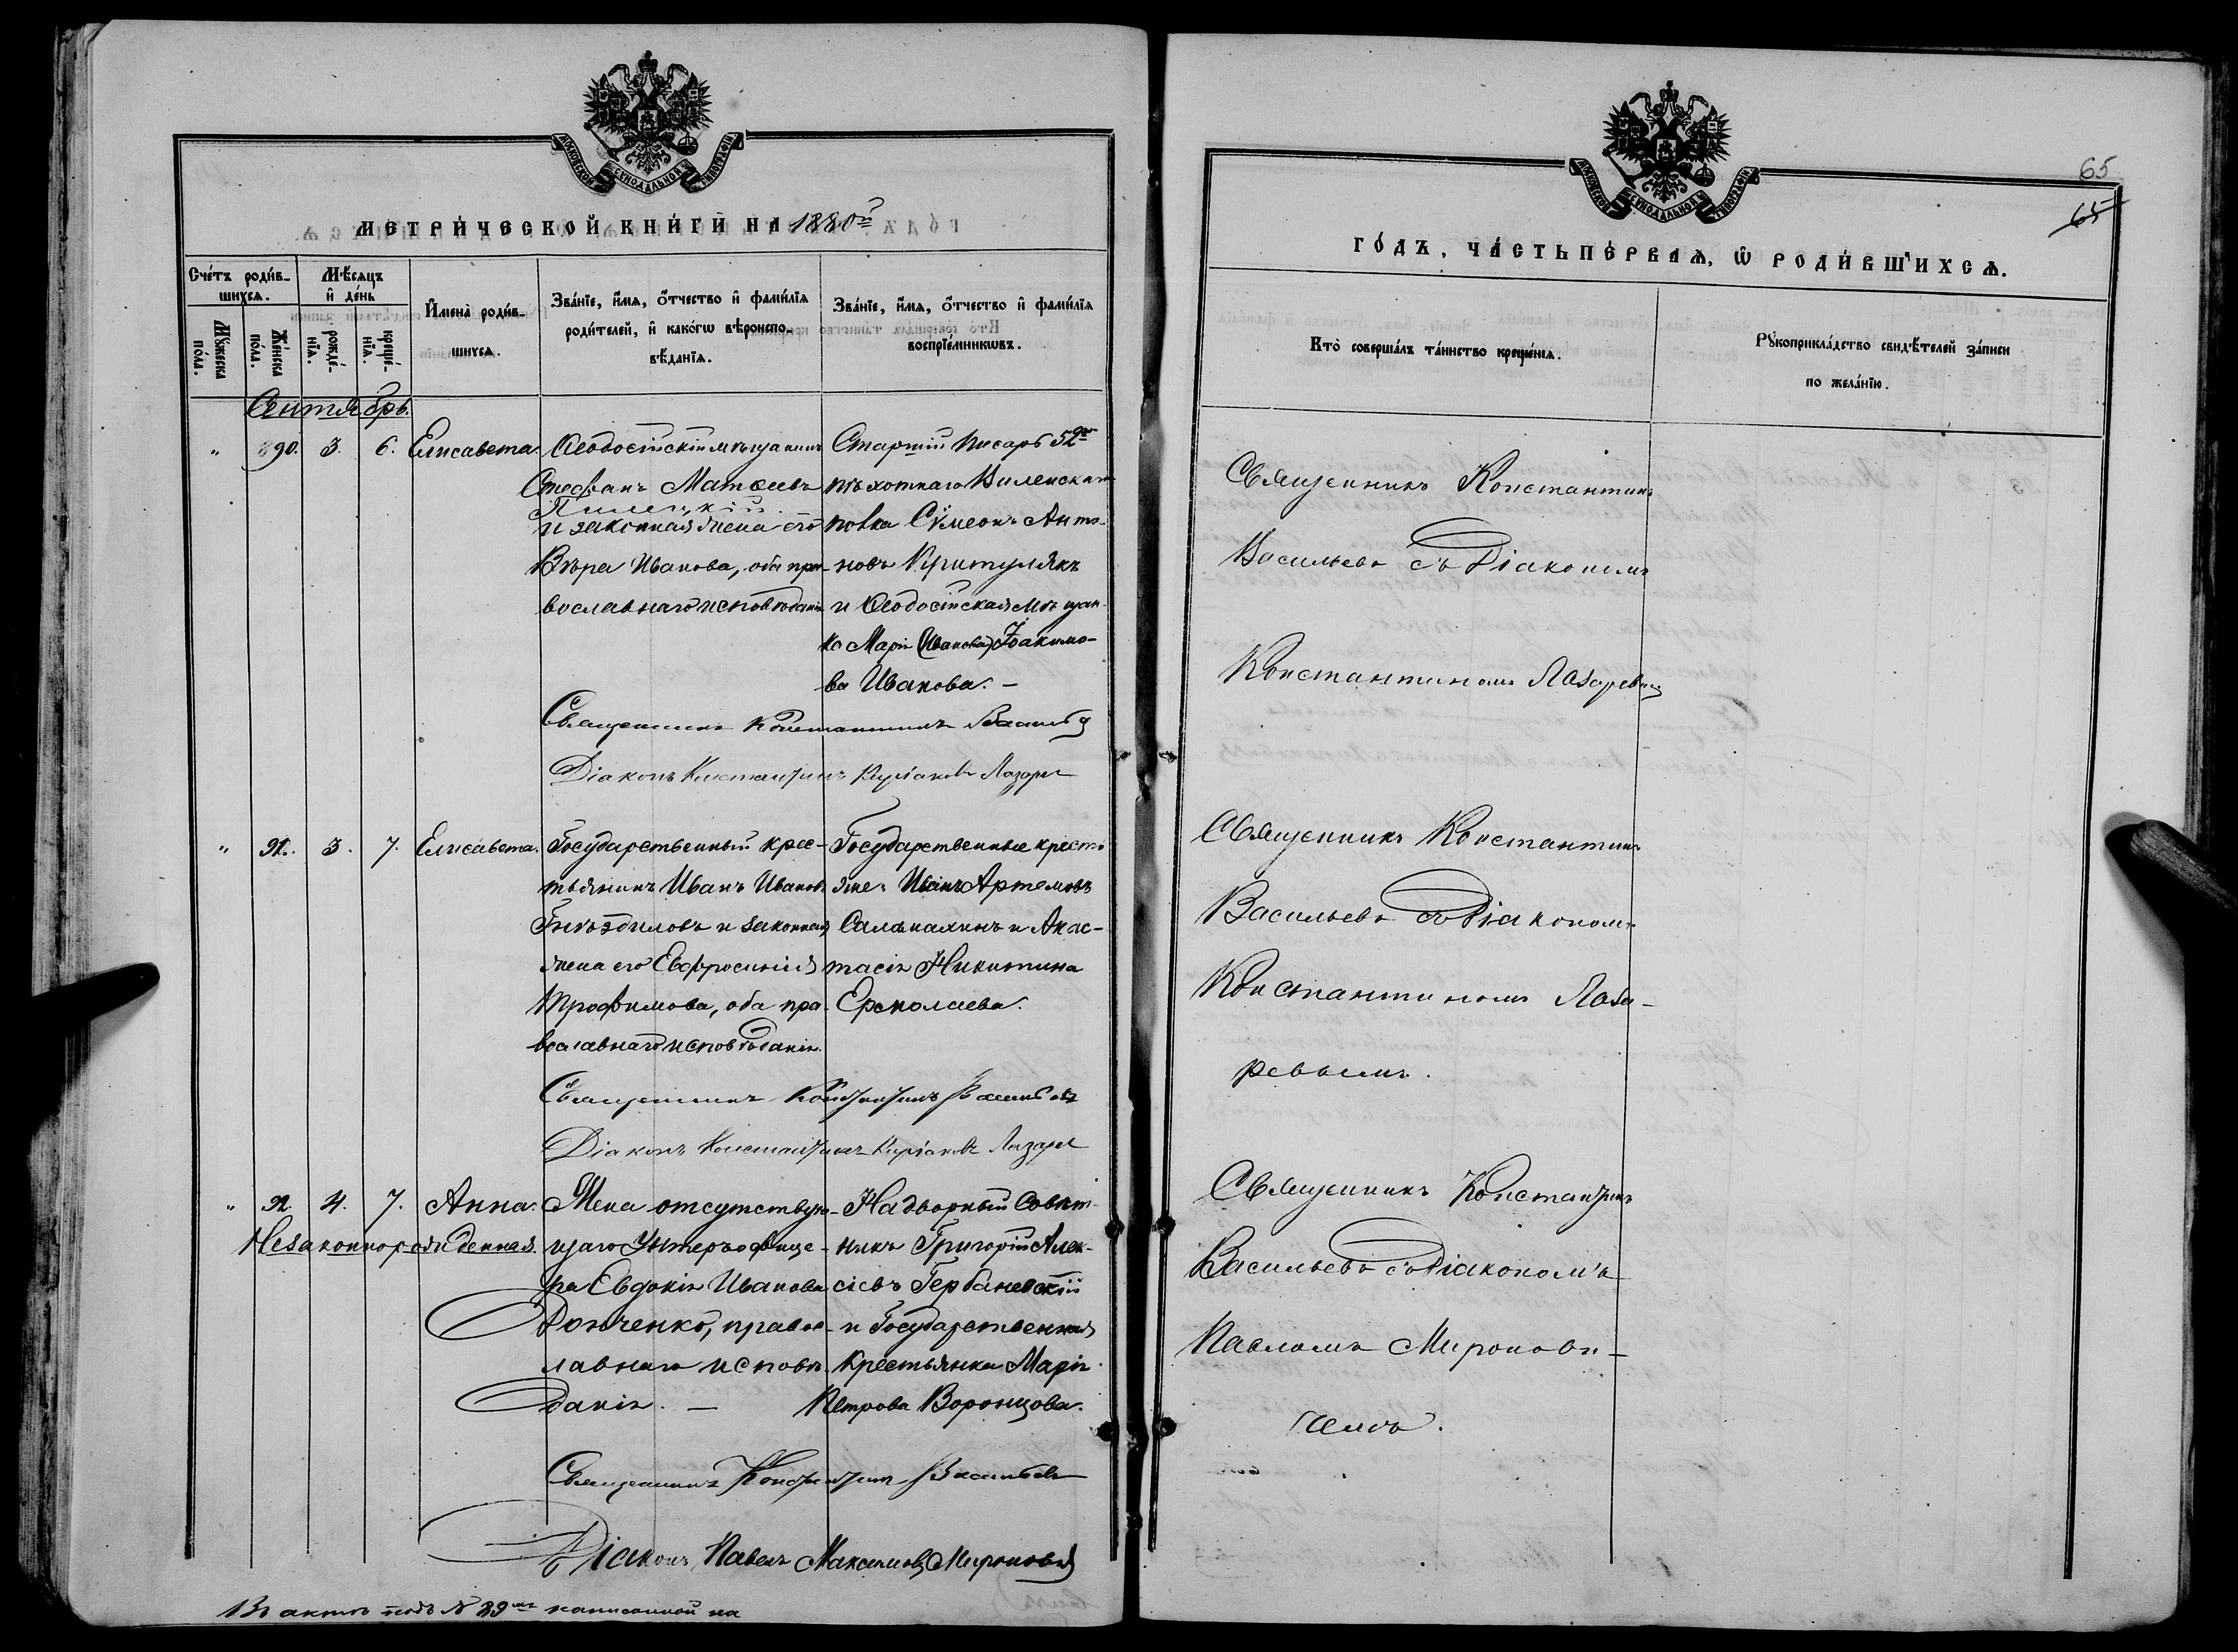 МОСКОВСКОЙ СѴНОДАЛЬНОЙ ТИПОГРАФІИ
МЕТРИ́ЧЕСКОЙ КНИ́ГИ НА 1880й
Сче́тъ роди́в-
шихсѧ.
Мѣ́сѧцъ
и҆ де́нь
Мꙋ́жеска
по́ла.
Же́нска
по́ла.
рожде́-
нїѧ.
креще́-
нїѧ.
И҆мена̀ роди́в-
шихсѧ.
Зва́нїе, и҆́мѧ, ѻ҆́тчество и҆ фами́лїѧ
роди́телей, и҆ како́гѡ вѣроиспо-
вѣ́данїѧ.
Зва́нїе, и҆́мѧ, ѻ҆́тчество и҆ фами́лїѧ
воспрїе́мникѡвъ.
Сентябрь.
" 890. 3. 6. Елисавета.
Ѳеодосійскій мѣщанинъ
Стефанъ Матѳеевъ
и законная жена его
Вѣра Иванова, оба пра-
вославнаго исповѣданія
Старшій писарь 52го
пѣхотнаго Виленскаго
полка Сѵмеонъ Анто-
новъ Критулякъ
и Ѳеодосійская мѣщан-
ка Марія (Иванова) Іоакимо-
ва Иванова. —
Священникъ Константинъ Васильевъ
Діаконъ Константинъ Киріаковъ Лазаревъ
" 91. 3. 7. Елисавета.
Государственный крес-
тьянинъ Иванъ Ивановъ
Гнѣздиловъ и законная
жена его Евфросинія
Трофимова, оба пра-
вославнаго исповѣданія.
Государственные кресть-
яне: Иванъ Артемовъ
Саламахинъ и Анас-
тасія Никитина
Ермолаева.
Священникъ Константинъ Васильевъ
Діаконъ Константинъ Киріаковъ Лазаревъ
" 92. 4. 7. Анна.
Незаконнорожденная.
Жена отсутствую-
щаго Унтеръ-офице-
ра Евдокія Иванова
Донченко, правос-
лавнаго исповѣ-
данія. —
Надворный Совѣт-
никъ Григорій Алек-
сіевъ Гербаневскій
и Государственная
крестьянка Марія
Петрова Воронцова.
Священникъ Константинъ Васильевъ
Діаконъ Павелъ Максимовъ Мироновичъ
Въ актѣ подъ № 89мъ написанной на
МОСКОВСКОЙ СѴНОДАЛЬНОЙ ТИПОГРАФІИ
65
65
ГО́ДЪ, ЧА́СТЬ ПЕ́РВАѦ, Ѡ҆ РОДИ́ВШИХСѦ.
Кто̀ соверша́лъ та́инство креще́нїѧ.
Рꙋкоприкла́дство свидѣ́телей за́писи
по жела́нїю.
Священникъ Константинъ
Васильевъ съ Діакономъ
Константиномъ Лазаревымъ
Священникъ Константинъ
Васильевъ съ Діакономъ
Константиномъ Лаза-
ревымъ.
Священникъ Константинъ
Васильевъ съ Діакономъ
Павломъ Миронови-
чемъ.